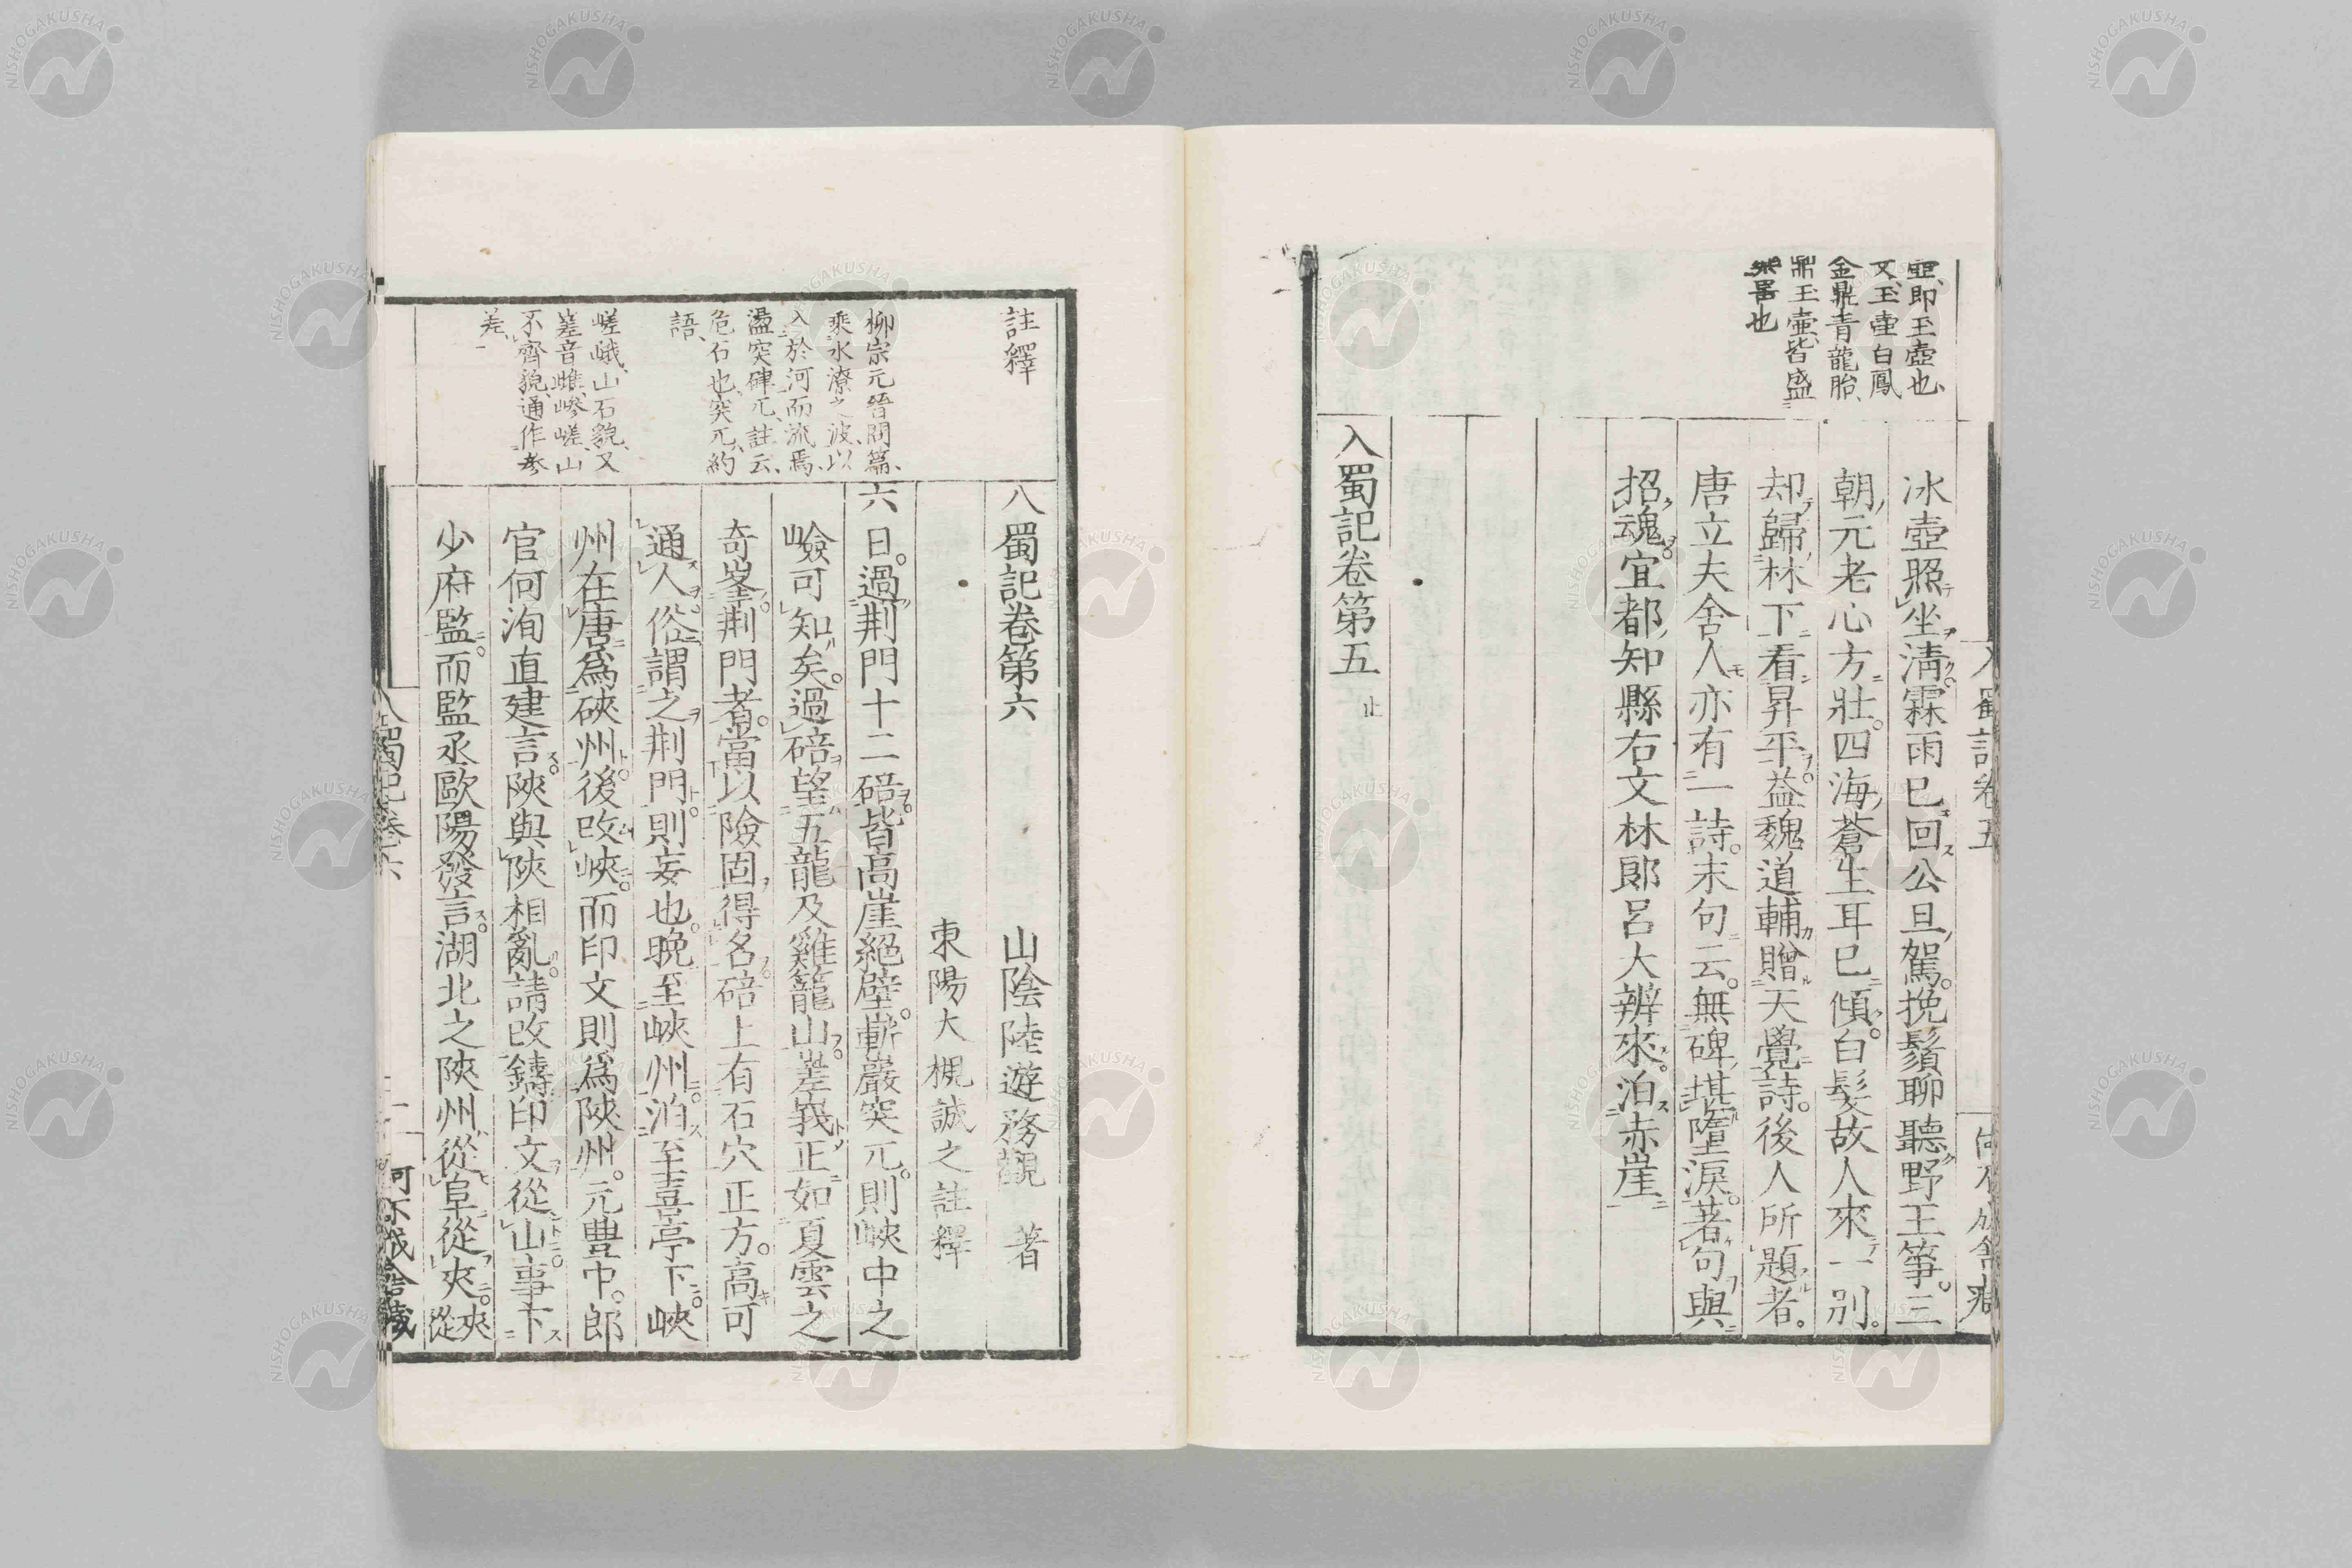 即玉壺也、
又、玉壷白鳳
金鼎青龍胎、
鼎玉壷、皆盛
器也
冰壺照坐清霖雨已回公旦駕。挽鬚聊聽野王箏。三
朝元老心方壯。四海蒼生耳已傾。白髮故人來一別。
却歸林下看昇平。益魏道輔贈天覺詩。後人所題者。
唐立夫舍人亦有一詩。末句云。無碑堪墮淚。著句與
招魂。宜都知縣右文林郎呂大辨來。泊赤崖
入蜀記卷第五 止
註釋
柳宗元晉問篇、
乘水潦之波、以
入於河而流焉、
盪突硉兀、註云、
危石也、突兀、約
語、
嵯峨、山石貌、又
嵳音雌、嵾嵯、山
不齊貌、通作參
差、
入蜀記卷第六
山陰陸遊務觀 著
東陽大槻誠之註釋
六日。過荆門十二碚。皆高崖絕壁。嶄巖突兀。則峽中之
嶮可知矣。過碚望五龍及雞籠山。嵳峩正如夏雲之
奇峯。荆門者。當以險固得名。碚上有石穴正方。高可
通人俗謂之荆門。則妄也。晚至峽州。泊至喜亭下。峽
州在唐爲硤州。後改峽。而印文則爲陜州。元豐中。郎
官何洵直建言。陜與陝相亂。請改鑄印文從山。事下
少府監。而監丞歐陽發言。湖北之陜州從阜從夾。夾從
入蜀記卷六
一
何不成舍藏